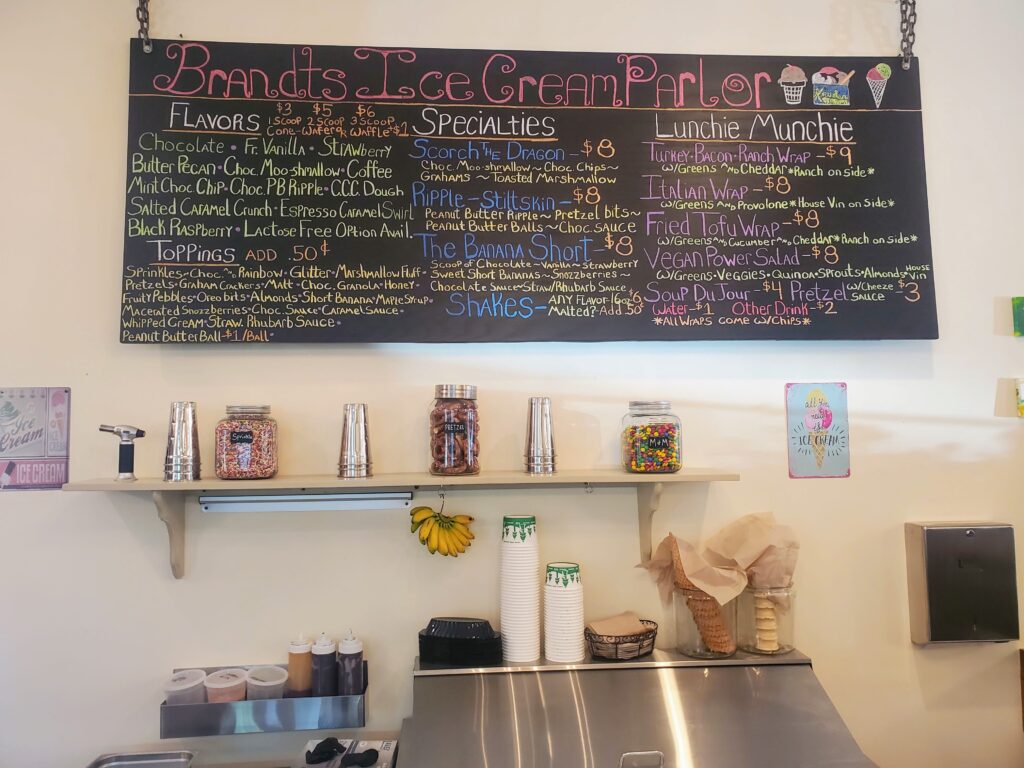 Brandts Ice Cream Parlor
Flavors
$3 $5 $6
1 Scoop 2 Scoop 3 Scoop
Cone-Wafer or Waffle $1
Chocolate • Fr. Vanilla • Strawberry
Butter Pecan • Choc Moo-shmallow • Coffee
Mint Choc Chip • Choc. PB Ripple • C.C.C. Dough
Salted Caramel Crunch • Espresso Caramel Swirl
Black Raspberry • Lactose Free Option Avail.
Toppings Add .50¢
Sprinkles-Choc. and Rainbow • Glitter • Marshmallow Fluff •
Pretzels • Graham Crackers • Malt • Choc. Granola • Honey •
Fruity Pebbles • Oreo bits • Almonds • Short Banana • Maple Syrup •
Macerated Snozzberries • Choc. Sauce • Caramel Sauce •
Whipped Cream • Straw. Rhubarb Sauce •
Peanut Butter Ball-$1/Ball •
Specialties
Scorch The Dragon - $8
Choc. Moo-shmallow ~ Choc. Chips ~
Grahams ~ Toasted Marshmallow
Ripple-Stiltskin - $8
Peanut Butter Ripple ~ Pretzel bits ~
Peanut Butter Balls ~ Choc. Sauce
The Banana Short - $8
Scoop of Chocolate ~ Vanilla ~ Strawberry
Sweet Short Bananas ~ Snozzberries ~
Chocolate Sauce ~ Straw/Rhubarb Sauce
Shakes - Any Flavor/16oz $6
Malted? - Add .50
Lunchie Munchie
Turkey-Bacon-Ranch Wrap - $9
w/Greens and Cheddar *Ranch on side*
Italian Wrap - $8
w/Greens and Provolone *House Vin on Side*
Fried Tofu Wrap - $8
w/Greens and Cucumber and Cheddar *Ranch on side*
Vegan Power Salad - $8
w/Greens • Veggies • Quinoa • Sprouts • Almonds House Vin
Soup Du Jour - $4 Pretzel w/Cheeze Sauce - $3
Water - $1 Other Drink - $2
*All Wraps come w/Chips*
Ice
Cream
ICE CREAM
Sprinkle
Pretzel
M&M
all you
need
is
ICE CREAM